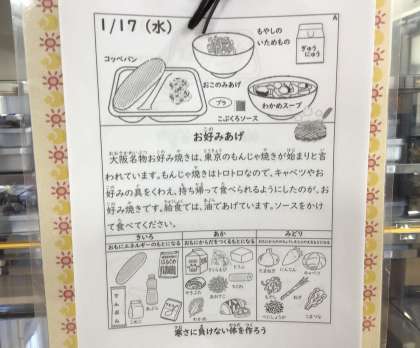 1/17 (水)
A
もやしの
いためもの
ぎゅう
にゅう
コッペパン
おこのみあげ
プラ
わかめスープ
こぶくろソース
お好みあげ
大阪名物お好み焼きは、東京のもんじゃ焼きが始まりと言
われています。もんじゃ焼きはトロトロなので、キャベツやお
好みの具をくわえ、持ち帰って食べられるようにしたのが、お
好み焼きです。給食では、油であげています。ソースをかけ
て食べてください。
きいろ あか みどり
おもにエネルギーのもとになる おもにからだをつくるもとになる
でんぷん
わかめ
たまねぎ にんじん キャベツ
もやし ねぎ
べにしょうが こまつな
寒さに負けない体を作ろう